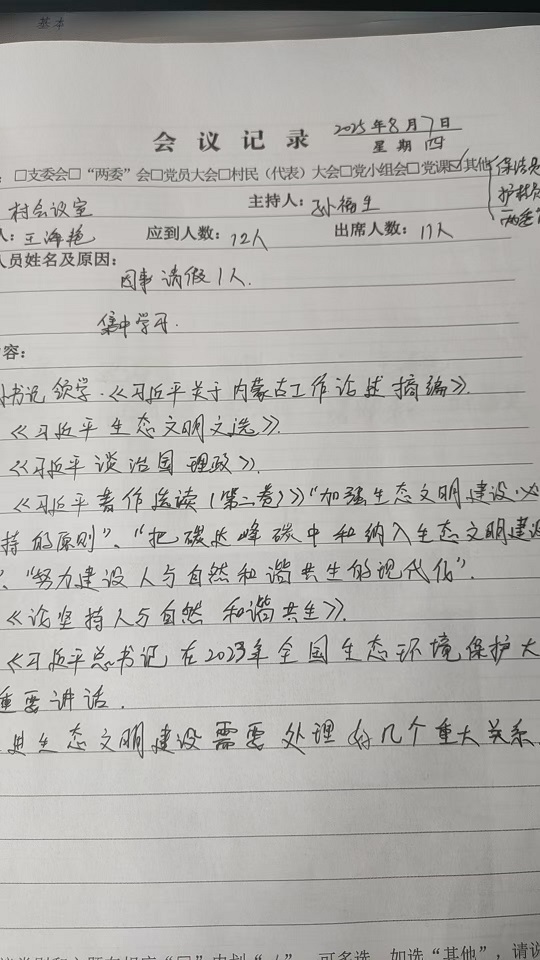 基本
会议记录 2025年8月7日
星期四
：□支委会□“两委”会□党员大会□村民（代表）大会□党小组会□党课☑其他
保洁员
护林员
村会议室 主持人：孙福生
人：王海艳 应到人数：12人 出席人数：11人
人员姓名及原因：
因事请假1人.
集中学习.
容：
书记领学.《习近平关于内蒙古工作论述摘编》.
《习近平生态文明文选》.
《习近平谈治国理政》.
《习近平著作选读（第二卷）》“加强生态文明建设必
持的原则”、“把碳达峰碳中和纳入生态文明建设
”、“努力建设人与自然和谐共生的现代化”.
《论坚持人与自然和谐共生》.
《习近平总书记在2023年全国生态环境保护大
重要讲话.
进生态文明建设需要处理好几个重大关系
可多选，如选“其他”，请说